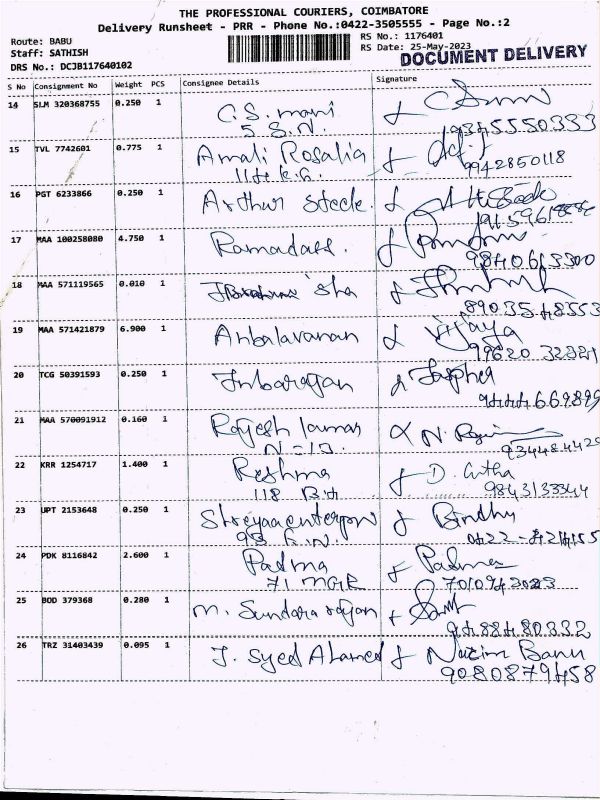 THE PROFESSIONAL COURIERS, COIMBATORE
Delivery Runsheet - PRR - Phone No.:0422-3505555 - Page No.:2
Route: BABU
Staff: SATHISH
DRS No.: DCJB117640102
RS No.: 1176401
RS Date: 25-May-2023
DOCUMENT DELIVERY
S No Consignment No Weight PCS Consignee Details Signature
14 SLM 320368755 0.250 1 C.S. mani
5 S.N. 9345550333
15 TVL 7742601 0.775 1 Amali Rosalia
9942850118
16 PGT 6233866 0.250 1 Arthur Steele
17 MAA 100258080 4.750 1 Ramadass.
9840613300
18 MAA 571119565 0.010 1 sha
8903548553
19 MAA 571421879 6.900 1 Ambalavanan Vijaya
20 TCG 50391593 0.250 1 Inbarajan
9444669899
21 MAA 570091912 0.160 1 Rajesh kumar N.
22 KRR 1254717 1.400 1 Reshma D.
118 9843133344
23 UPT 2153648 0.250 1 Bindhu
24 PDK 8116842 2.600 1 Padma Padma
71 MGR
25 BOD 379368 0.280 1 M. Sundararajan
9488480332
26 TRZ 31403439 0.095 1 J. Syed Ahamed Nazim Banu
9080879458